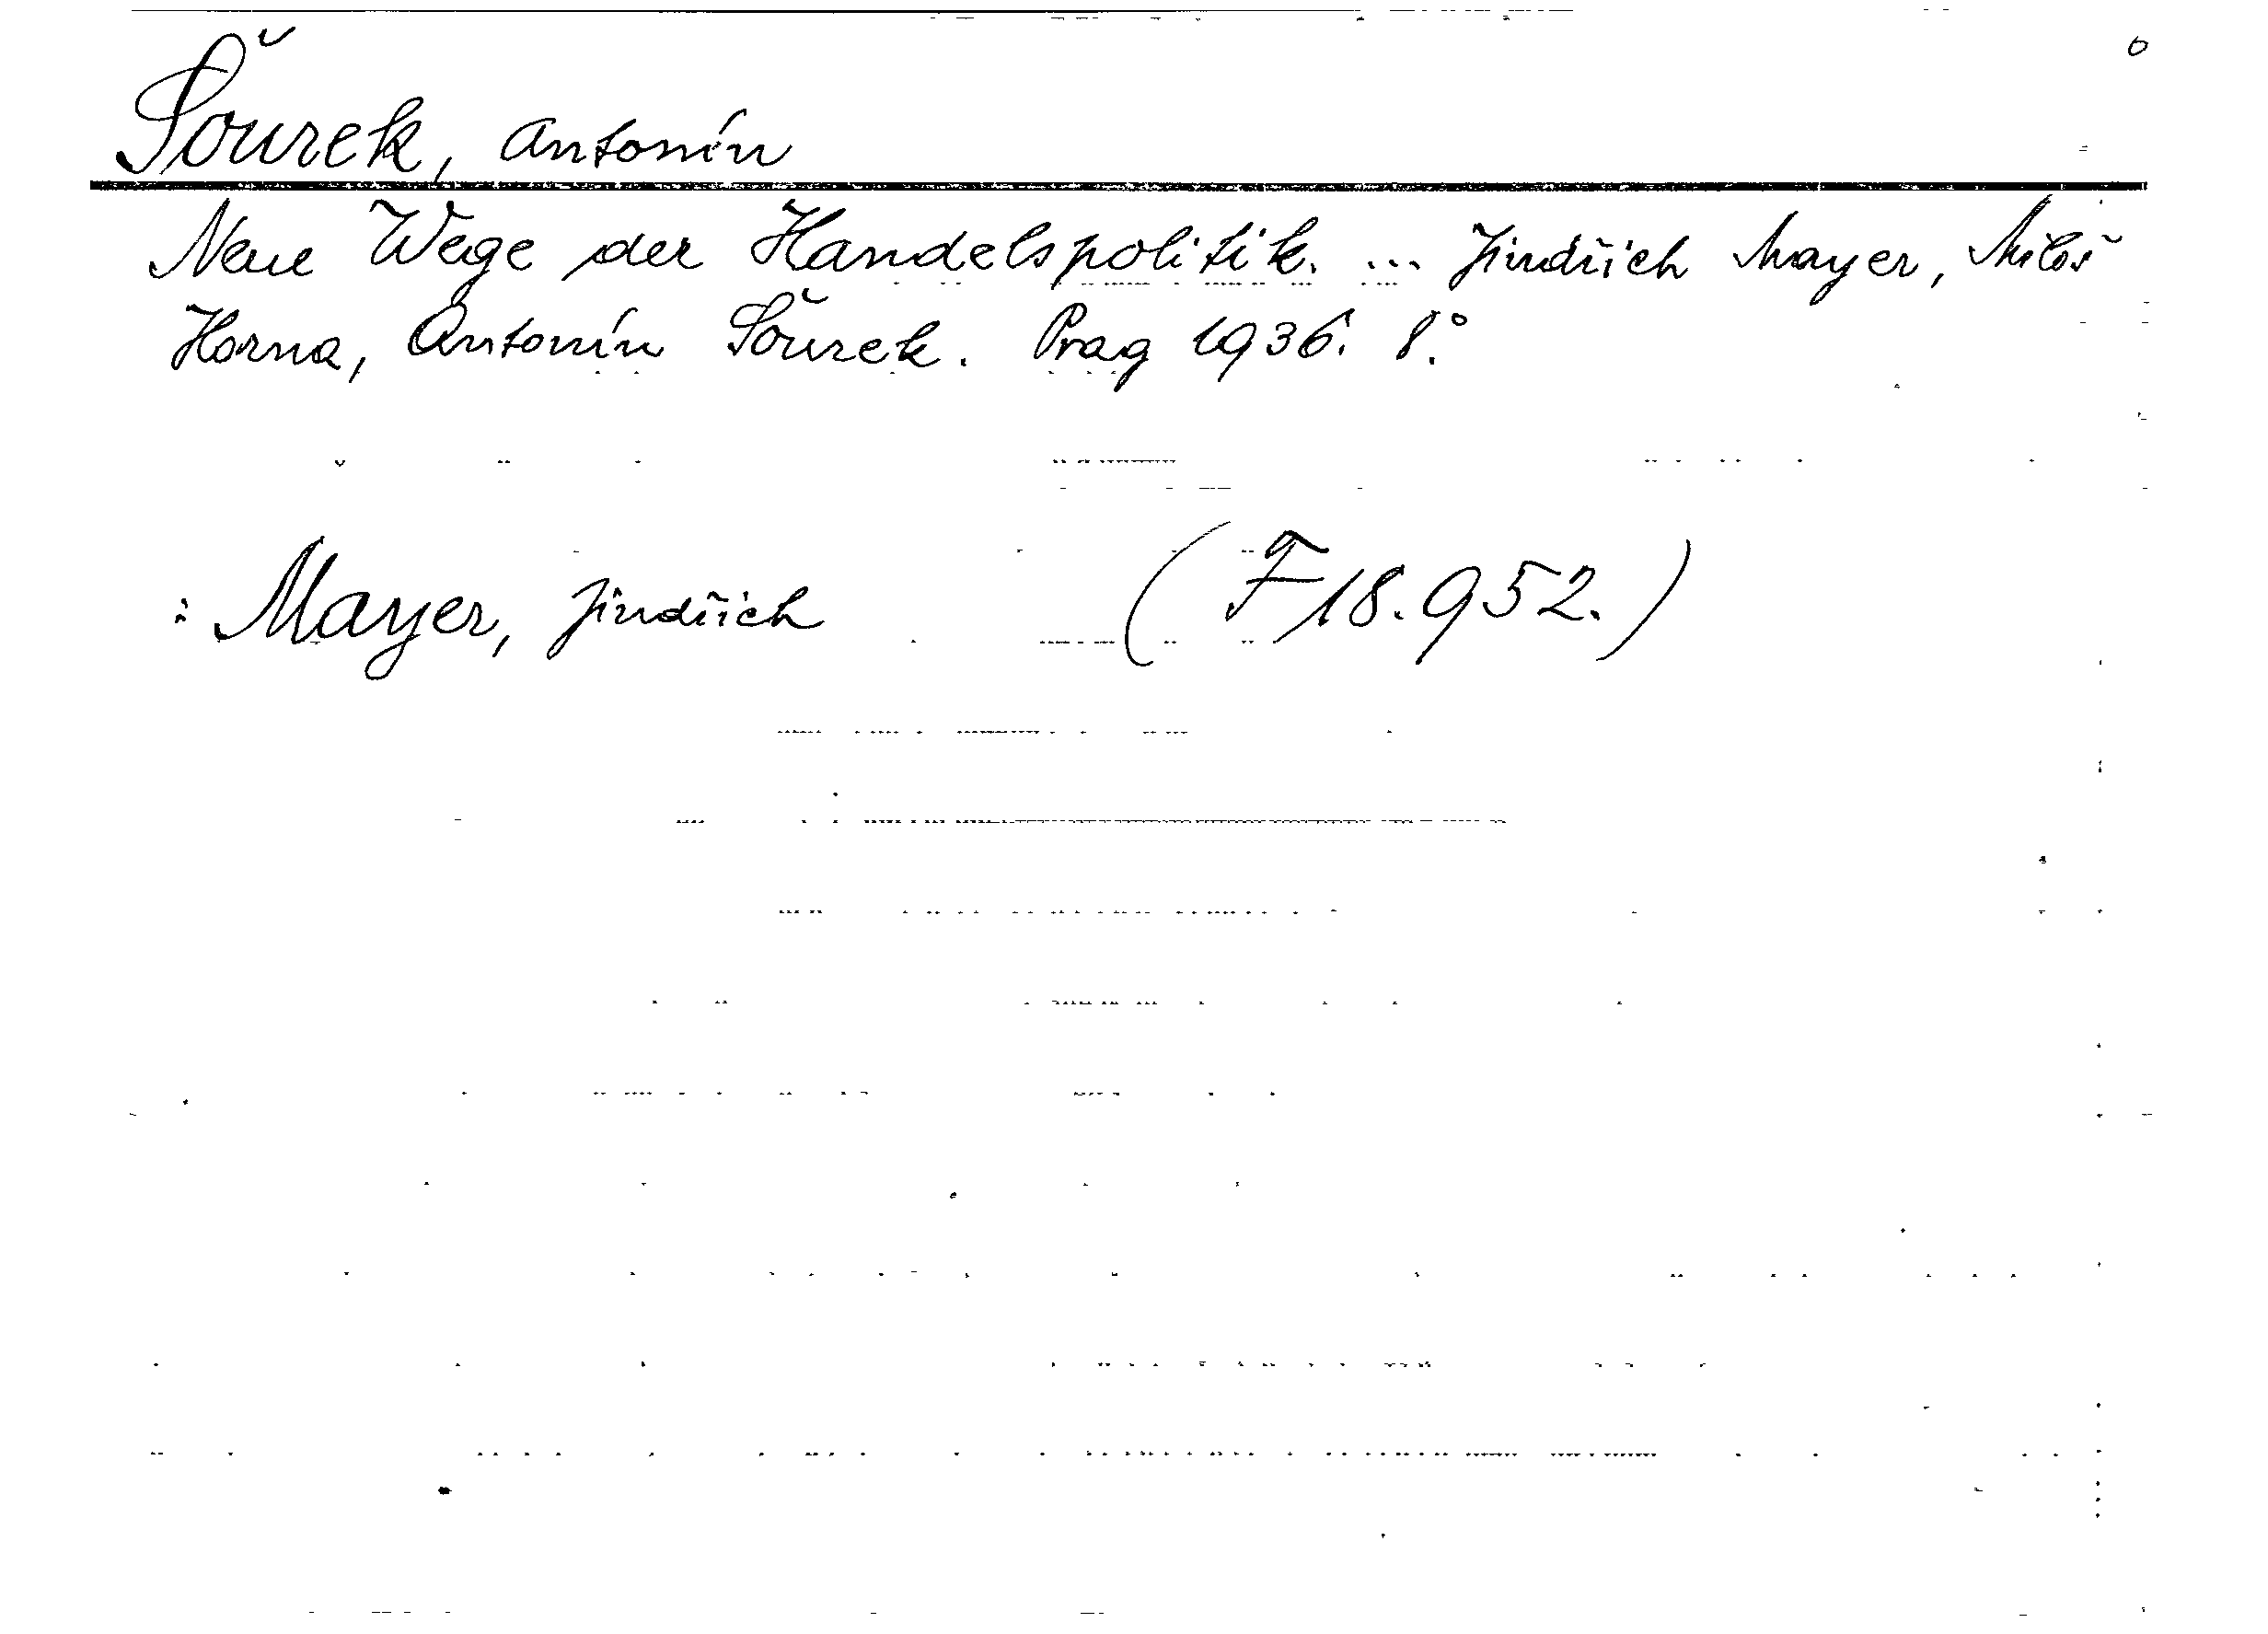 Šourek, Antonín
Neue Wege der Handelspolitik. ... Jindřich Mayer, Miloš
Horna, Antonín Šourek. Prag 1936. 8.°
: Mayer, Jindřich (F 18.952.)